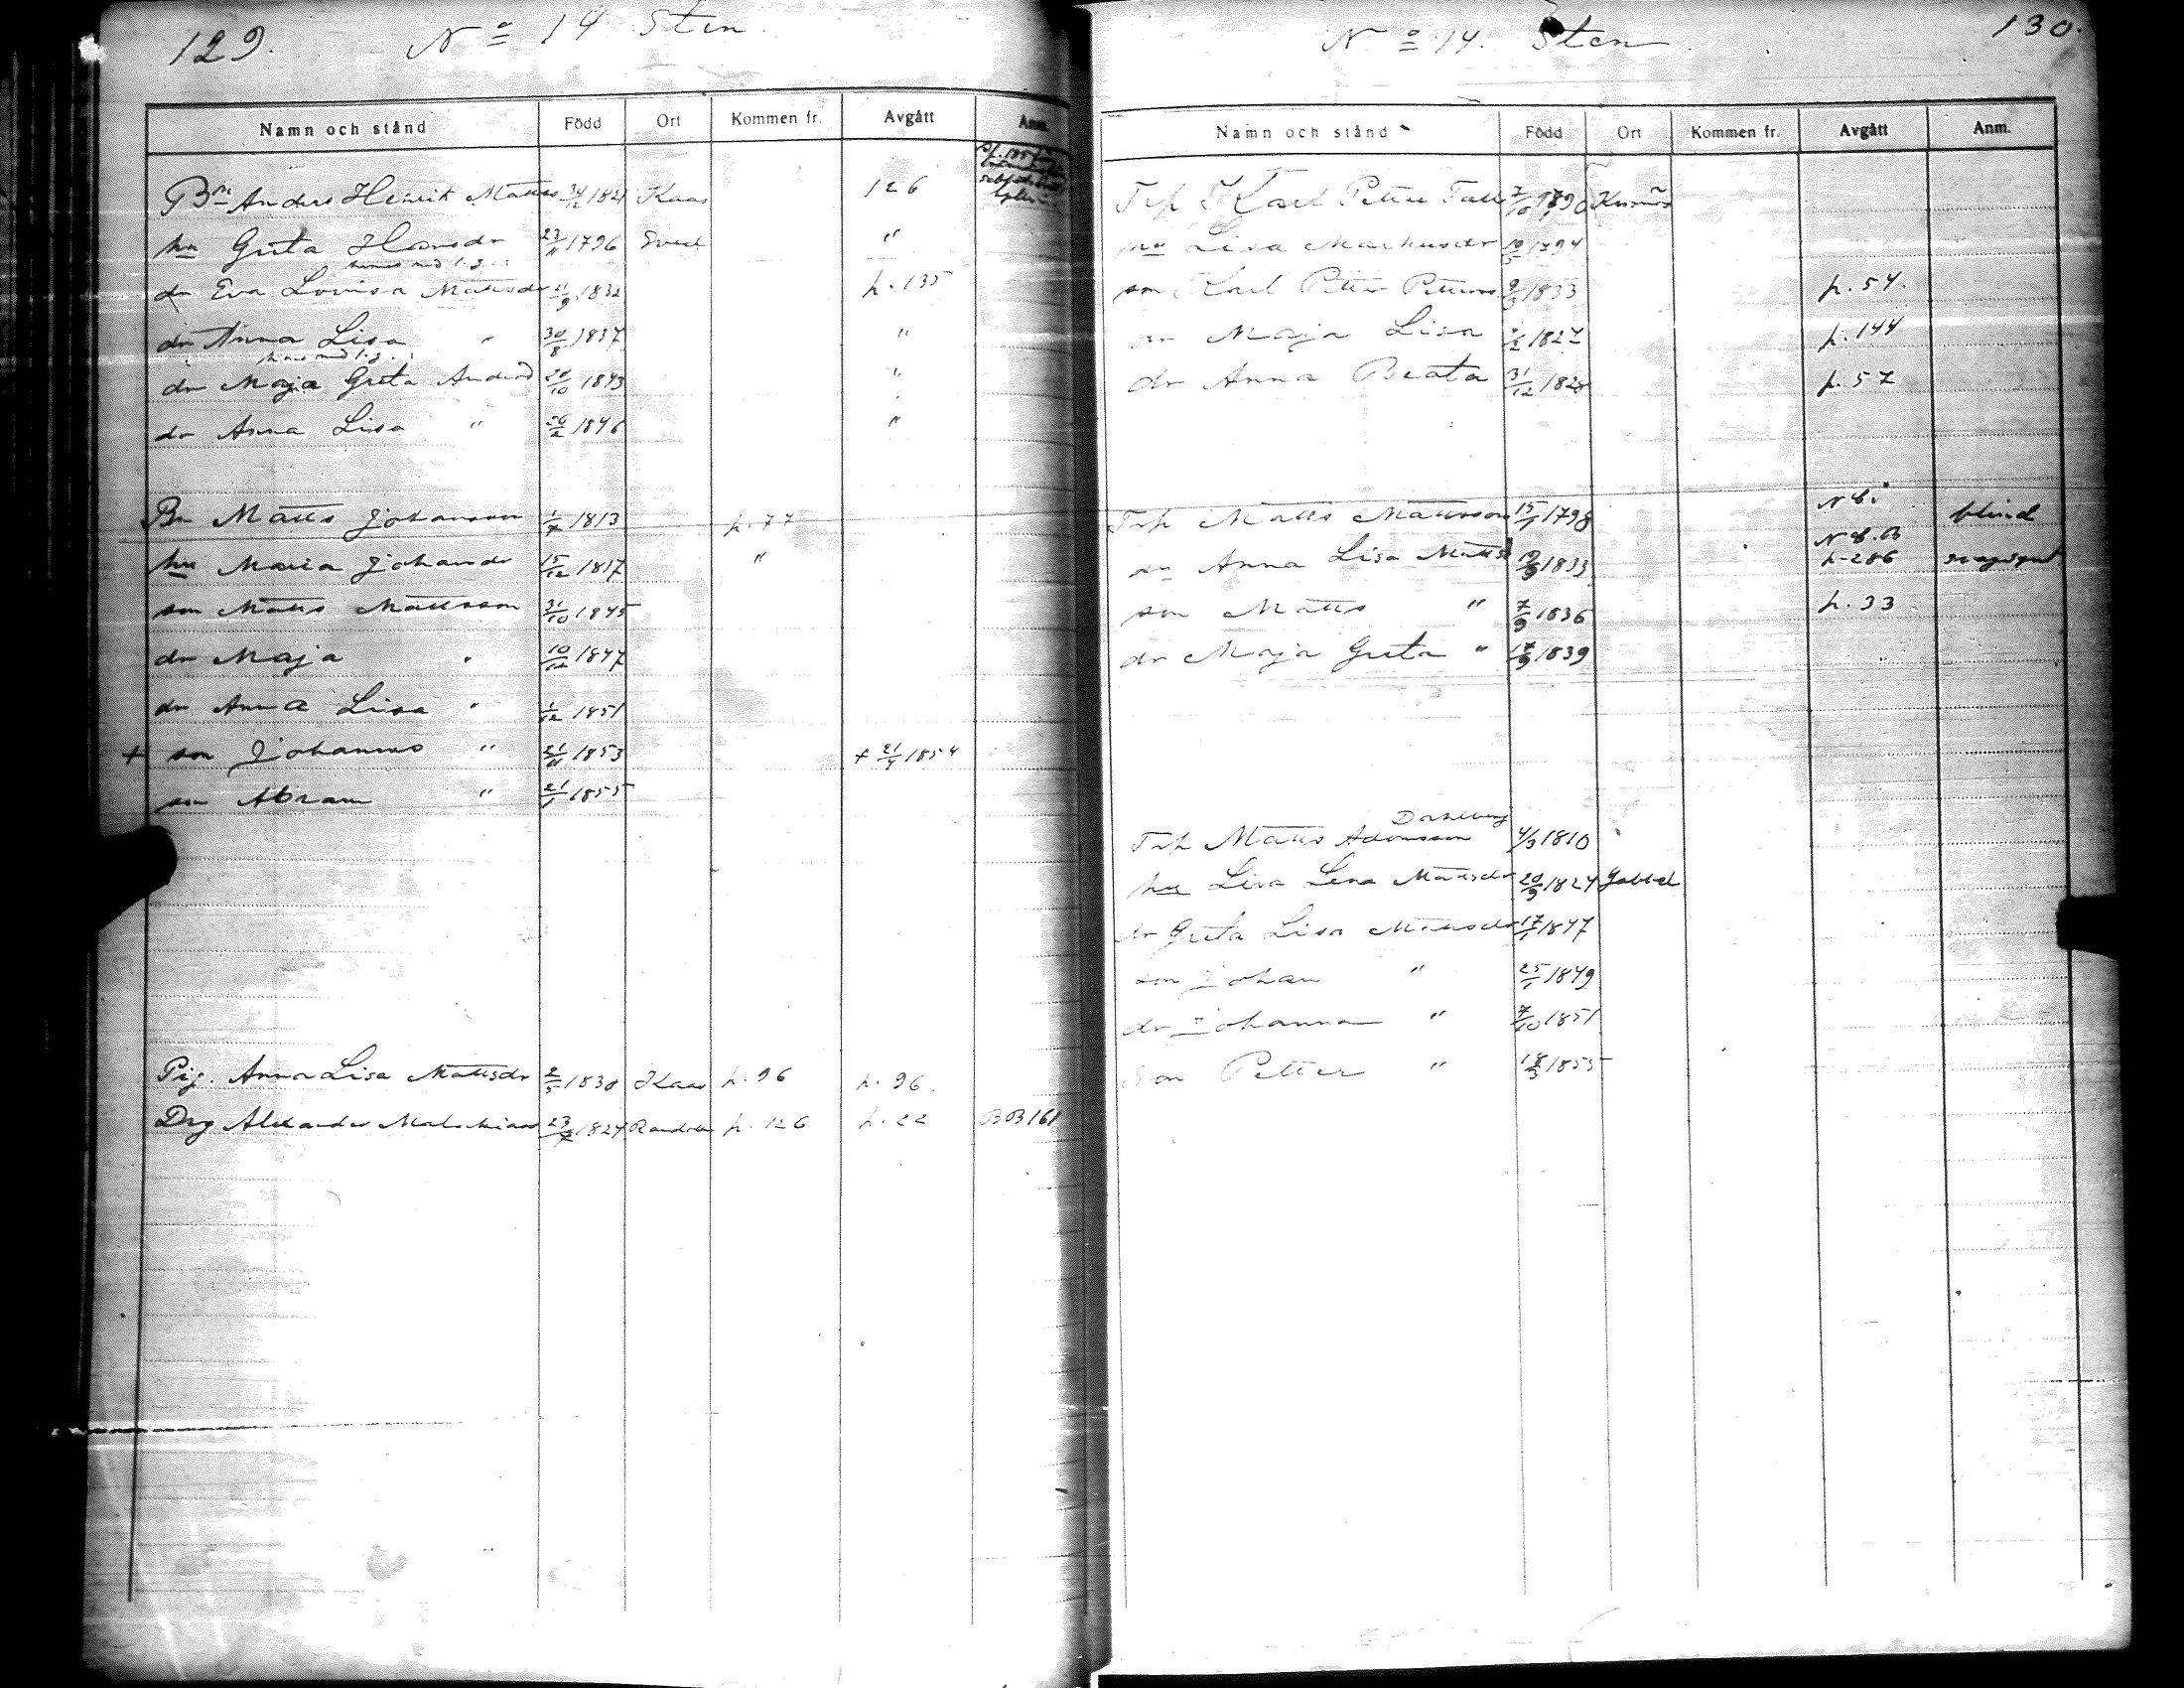 129. No 14 Sten.
Namn och stånd Född Ort Kommen fr. Avgått Anm.
Bn Anders Henrik Matts 1821 Kaas 126
hu Greta Hansdr 23/11 1796 Eved "
hennes med l. g.
dr Eva Lovisa Mattsdr 11/9 1832 p. 135
dr Anna Lisa " 30/8 1837 "
hans med l. g.
dr Maja Greta Andersd 20/10 1843 "
dr Anna Lisa " 26/2 1846 "
Bn Matts Johansson 1/7 1813 p. 77
hu Maria Johansdr 15/12 1817 "
son Matts Mattsson 31/10 1845
dr Maja " 10/12 1847
dr Anna Lisa " 1/12 1851
+ son Johannes " 21/11 1853 + 21/4 1854
son Abram " 21/1 1855
Pig. Anna Lisa Mattsdr 2/5 1830 Kaas p. 96 p. 96.
Drg Alexander Malakias 23/7 1824 p. 126 p. 22 BB 161
No 14. Sten. 130.
Namn och stånd Född Ort Kommen fr. Avgått Anm.
Trp Karl Petter Fall 7/10 1790
hu Lisa Markusdr 10/5 1794
son Karl Petter Petters 9/3 1833 p. 54.
dr Maja Lisa 1827 p. 144
dr Anna Beata 31/12 1828 p. 57
Trp Matts Mattsson 15/1 1798 N B. blind
N B. B
dr Anna Lisa Mattsd 19/9 1833 p. 286 svagsynt
son Matts " 7/9 1836 p. 33
dr Maja Greta " 17/9 1839
Dahlberg
Trp Matts Adamsson 4/3 1810
hu Lisa Lena Mattsdr 20/9 1824 Gobbel
dr Greta Lisa Mattsdr 17/1 1847
son Johan " 25/1 1849
dr Johanna " 7/10 1851
Son Petter " 18/3 1855